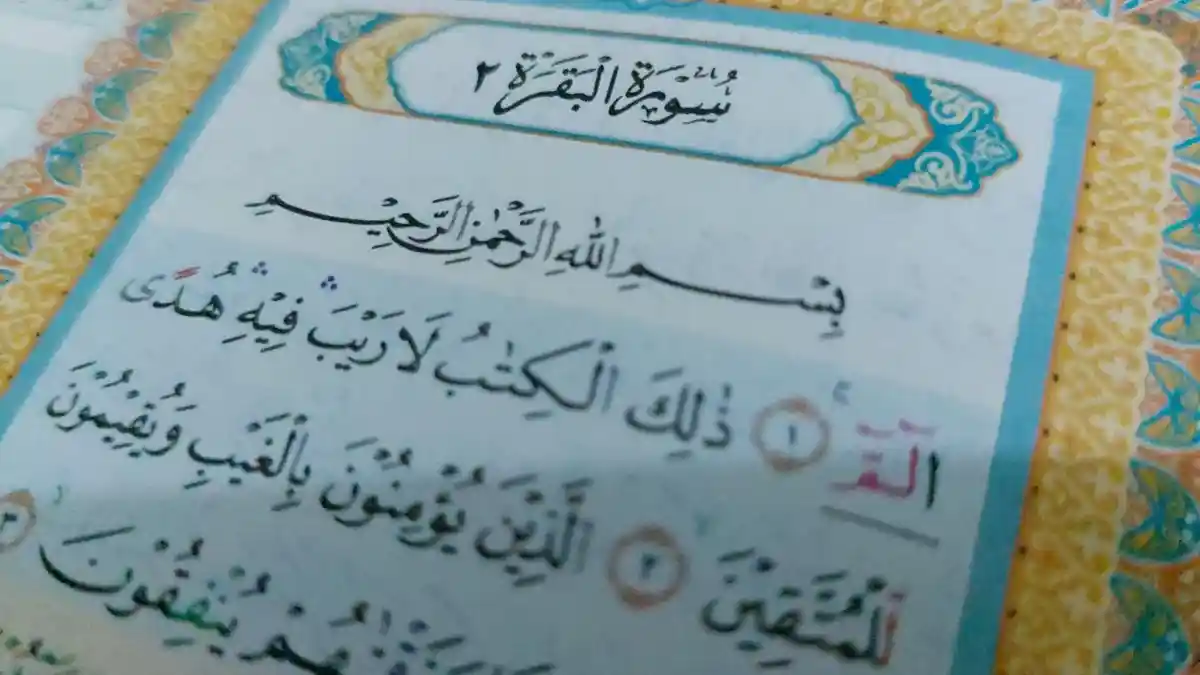 سُوْرَةُ الْبَقَرَة ٢
بِسْمِ اللهِ الرَّحْمٰنِ الرَّحِيْمِ
الٓمّٓ ١ ذٰلِكَ الْكِتٰبُ لَا رَيْبَ فِيْهِ هُدًى
لِّلْمُتَّقِيْنَ ٢ الَّذِيْنَ يُؤْمِنُوْنَ بِالْغَيْبِ وَيُقِيْمُوْنَ
هُمْ يُنْفِقُوْنَ ٣